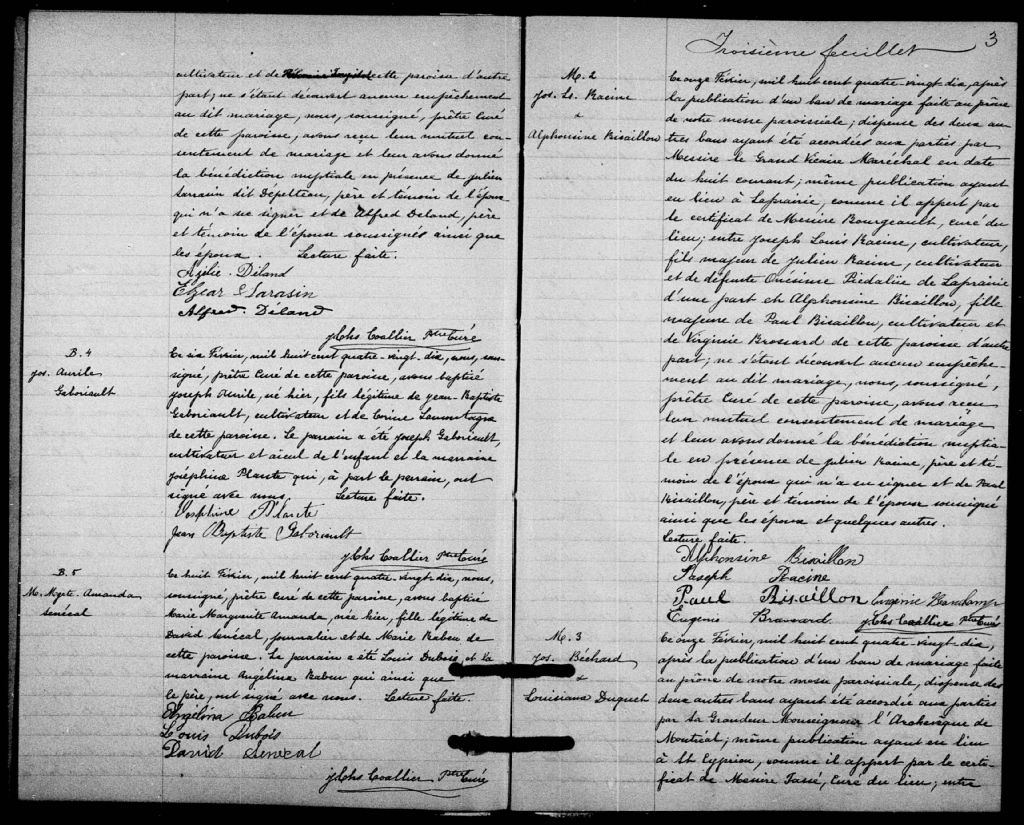 cultivateur et de cette paroisse d'autre
part; ne s'étant découvert aucun empêchement
au dit mariage, nous, soussigné, prêtre Curé
de cette paroisse, avons reçu leur mutuel con-
sentement de mariage et leur avons donné
la bénédiction nuptiale en présence de Julien
Sarrasin dit Dépelteau, père et témoin de l'époux
qui n'a su signer et de Alfred Deland, père
et témoin de l'épouse soussignés ainsi que
les époux. Lecture faite.
Azélie. Déland
Elzear Sarasin
Alfred. Déland
J Chs Coallier Ptre Curé
B. 4
Jos. Aurile
Gaboriault
Ce six Février, mil huit cent quatre-vingt-dix, nous, sous-
signé, prêtre Curé de cette paroisse, avons baptisé
Joseph Aurile, né hier, fils légitime de Jean-Baptiste
Gaboriault, cultivateur et de Corine Lamontagne
de cette paroisse. Le parrain a été Joseph Gaboriault,
cultivateur et aieul de l'enfant et la marraine
Joséphine Plante qui, à part le parrain, ont
signé avec nous. Lecture faite.
Josephine Plante
Jean Baptiste Gaboriault
J Chs Coallier Ptre Curé
B. 5
M. Mgte. Amanda
Senécal
Ce huit Février, mil huit cent quatre-vingt-dix, nous,
soussigné, prêtre Curé de cette paroisse, avons baptisé
Marie Marguerite Amanda, née hier, fille légitime de
David Senécal, journalier et de Marie Rabeu de
cette paroisse. Le parrain a été Louis Dubois, et la
marraine Angelina Rabeu qui ainsi que
le père, ont signé avec nous. Lecture faite.
Angélina Rabeu
Louis Dubois
David Senecal
J Chs Coallier Ptre Curé
Troisième feuillet 3
M. 2
Jos. Ls. Racine
+
Alphonsine Bisaillon
Ce onze Février, mil huit cent quatre vingt-dix, après
la publication d'un ban de mariage faite au prône
de notre messe paroissiale; dispense des deux au-
tres bans ayant été accordées aux parties par
Messire le Grand Vicaire Maréchal en date
du huit courant; même publication ayant
eu lieu à Laprairie, comme il appert par
le certificat de Messire Bourgeault, curé du
lieu; entre Joseph Louis Racine, cultivateur,
fils majeur de Julien Racine, cultivateur
et de défunte Onésime Piedalue de Laprairie
d'une part et Alphonsine Bisaillon, fille
majeure de Paul Bisaillon, cultivateur et
de Virginie Brossard de cette paroisse d'autre
part; ne s'étant découvert aucun empêche-
ment au dit mariage, nous, soussigné,
prêtre Curé de cette paroisse, avons reçu
leur mutuel consentement de mariage
et leur avons donné la bénédiction nuptia-
le en présence de Julien Racine, père et té-
moin de l'époux qui n'a su signer et de Paul
Bisaillon, père et témoin de l'épouse soussigné
ainsi que les époux et quelques autres.
Lecture faite.
Alphonsine Bisaillon
Joseph Racine
Paul Bisaillon Eugénie
Eugenie Brassard J Chs Coallier Ptre Curé
M. 3
Jos. Béchard
+
Louisiana Duquet
Ce onze Février, mil huit cent quatre-vingt-dix,
après la publication d'un ban de mariage faite
au prône de notre messe paroissiale, dispense des
deux autres bans ayant été accordée aux parties
par Sa Grandeur Monseigneur l'Archevêque de
Montréal; même publication ayant eu lieu
à St Cyprien, comme il appert par le certi-
ficat de Messire Tassé, Curé du lieu; entre